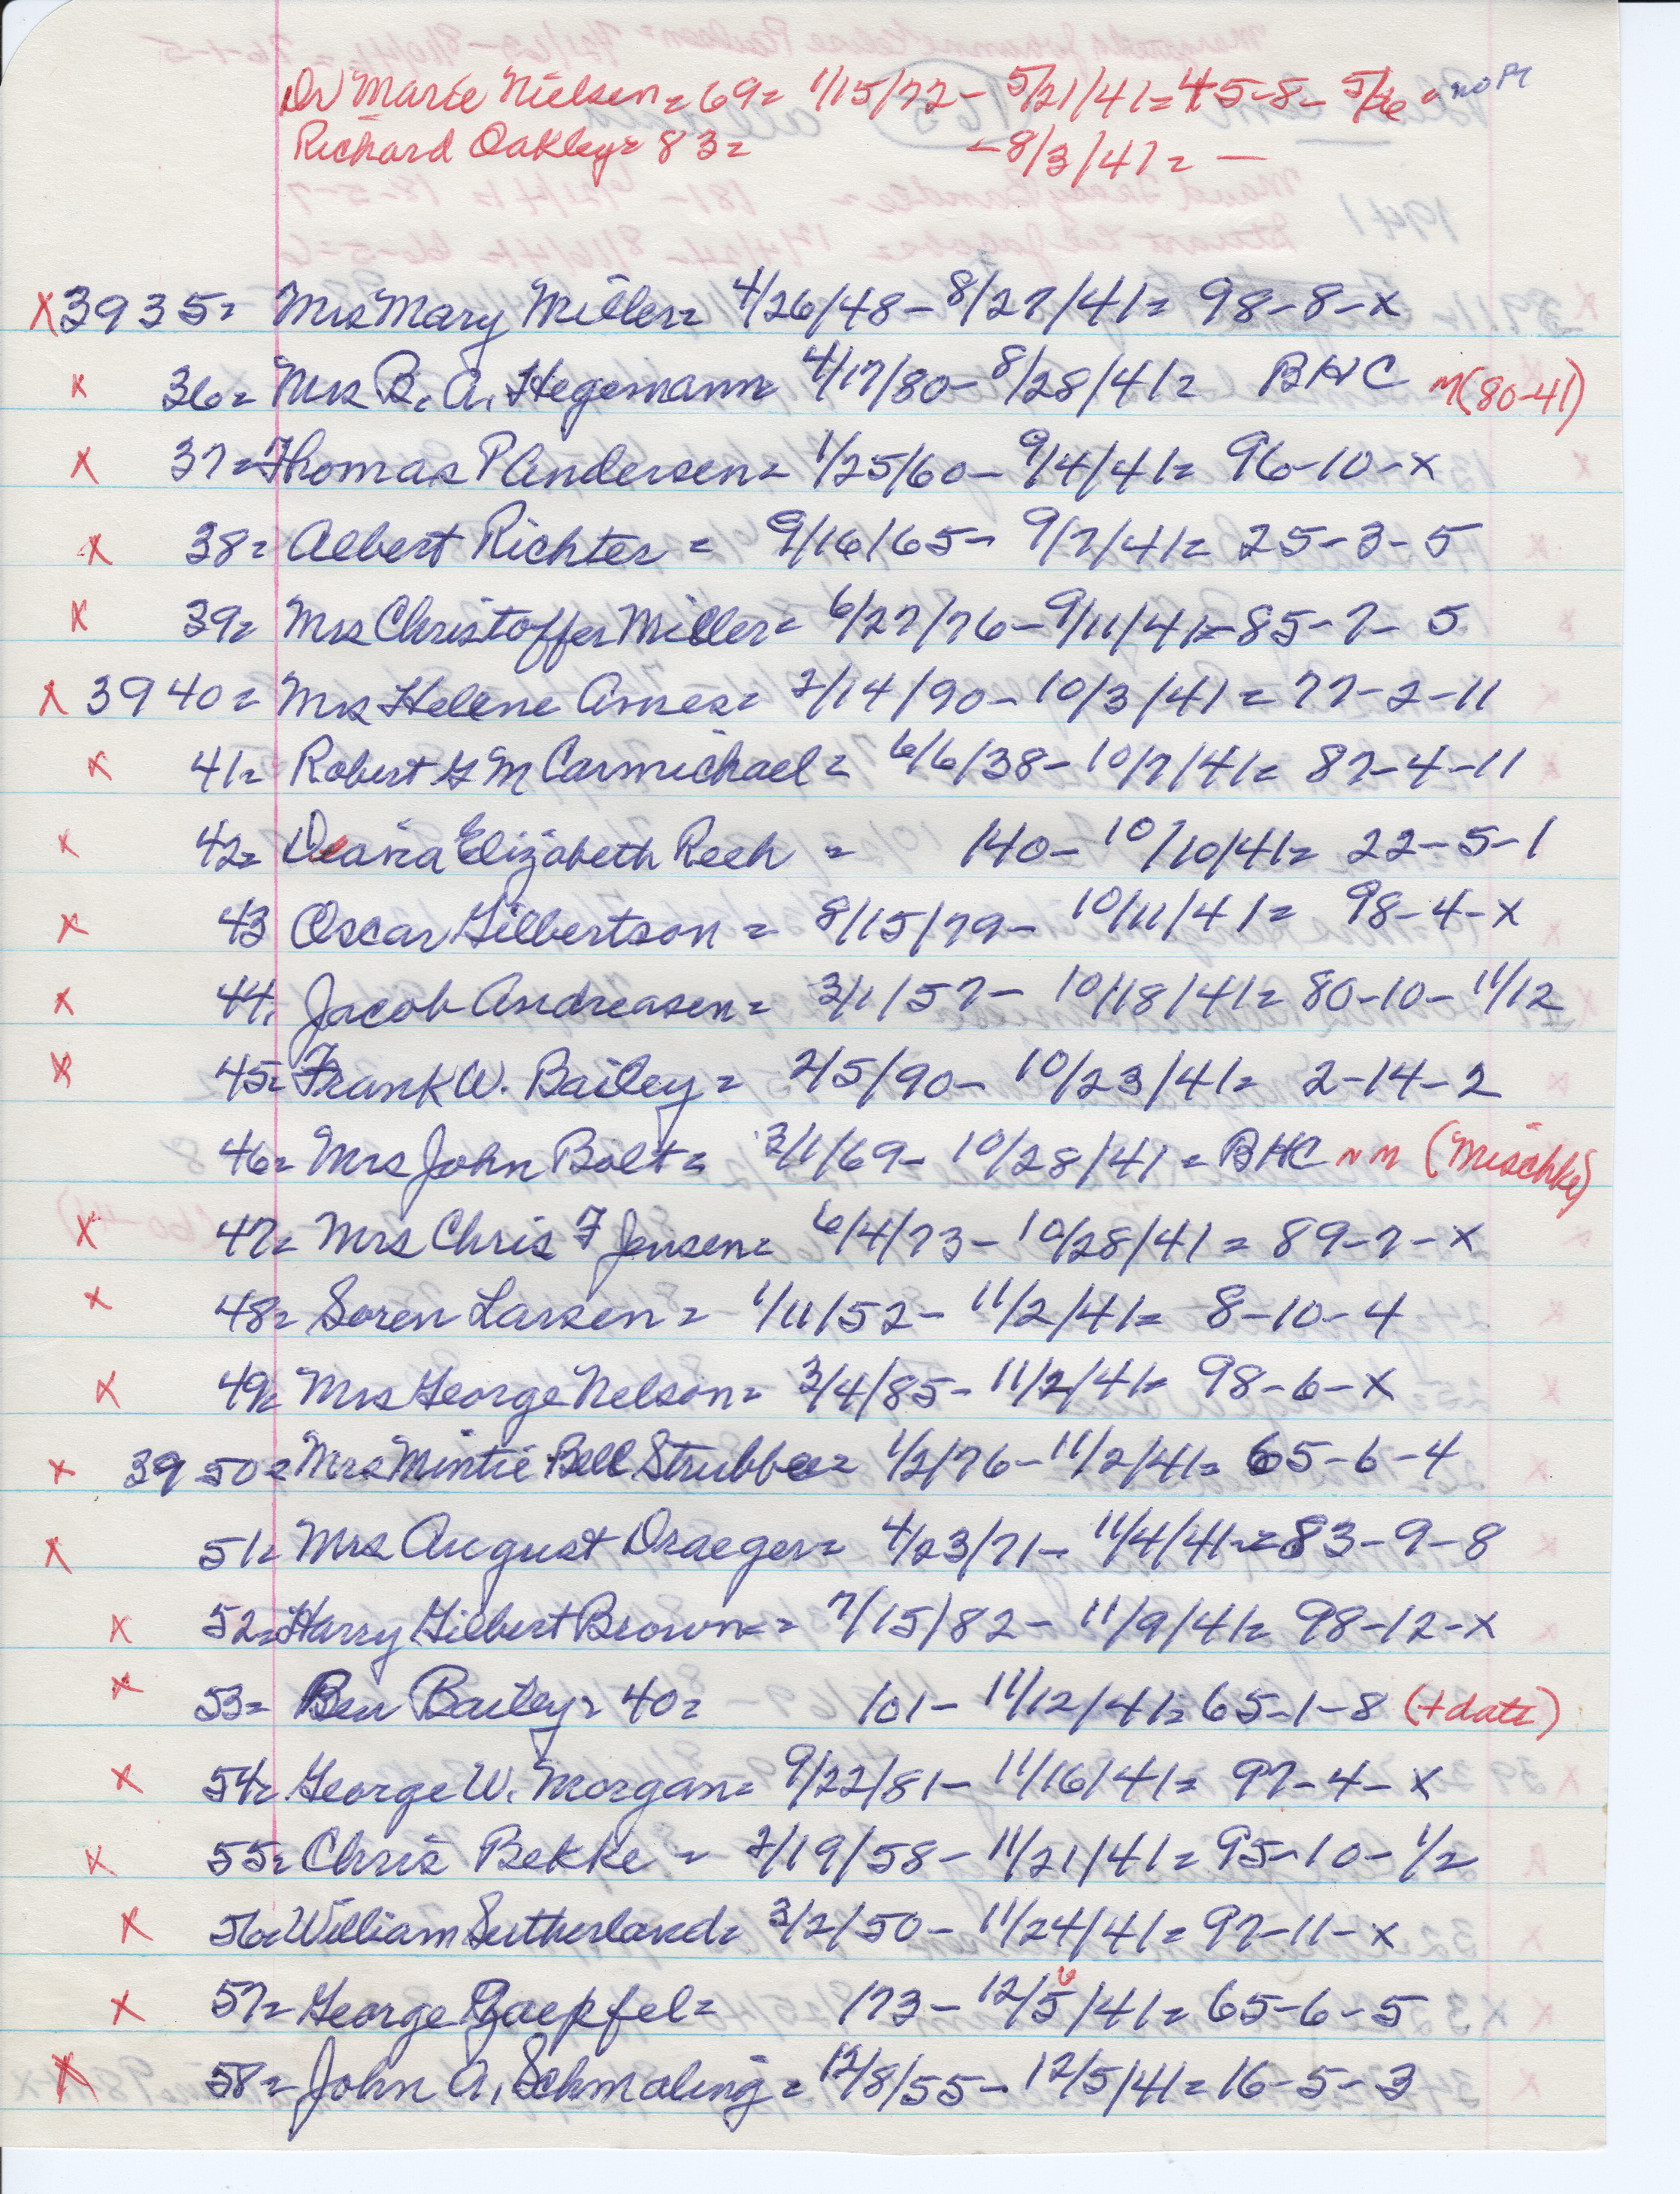 Dr Marie Nielsen = 69 = 1/15/72 - 5/21/41 = 45-8- 5/6 = no M
Richard Oakley = 83 = - 8/3/41 = —
1941
X 3935 = Mrs Mary Miller = 4/26/48 - 8/27/41 = 98-8-X
X 36 = Mrs B. A. Hegemann 4/17/80 - 8/28/41 = BHC M(80-41)
X 37 = Thomas P Andersen = 1/25/60 - 9/4/41 = 96-10-X
X 38 = Albert Richter = 9/16/65 - 9/7/41 = 25-3-5
X 39 = Mrs Christoffer Miller = 6/27/76 - 9/11/41 = 85-7-5
X 3940 = Mrs Helene Ames = 2/14/90 - 10/3/41 = 77-2-11
X 41 = Robert G M Carmichael = 6/6/38 - 10/7/41 = 87-4-11
X 42 = Elizabeth = 140 - 10/10/41 = 22-5-1
X 43 Oscar Gilbertson = 8/15/79 - 10/11/41 = 98-4-X
X 44. Jacob Andreasen = 3/1/57 - 10/18/41 = 80-10-11/12
X 45 = Frank W. Bailey = 2/5/90 - 10/23/41 = 2-14-2
46 = Mrs John Bolt = 3/1/69 - 10/28/41 = BHC ~ M (Mischke)
X 47 = Mrs Chris F Jensen = 6/4/73 - 10/28/41 = 89-7-X
X 48 = Soren Larsen = 1/11/52 - 11/2/41 = 8-10-4
X 49 = Mrs George Nelson = 3/4/85 - 11/2/41 = 98-6-X
X 3950 = Mrs Mintie Bell = 1/2/76 - 11/2/41 = 65-6-4
X 51 = Mrs August Draeger = 4/23/71 - 11/4/41 = 83-9-8
X 52 = Harry Gilbert Brown = 7/15/82 - 11/9/41 = 98-12-X
X 53 = Ben Bailey = 40 = 101 - 11/12/41 = 65-1-8 (+date)
X 54 = George W. Morgan = 9/22/81 - 11/16/41 = 97-4-X
X 55 = Chris Bekke = 2/19/58 - 11/21/41 = 95-10-1/2
X 56 = William Sutherland = 3/2/50 - 11/24/41 = 97-11-X
X 57 = George = 173 - 12/5 6/41 = 65-6-5
X 58 = John A. Schmaling = 12/8/55 - 12/5/41 = 16-5-3